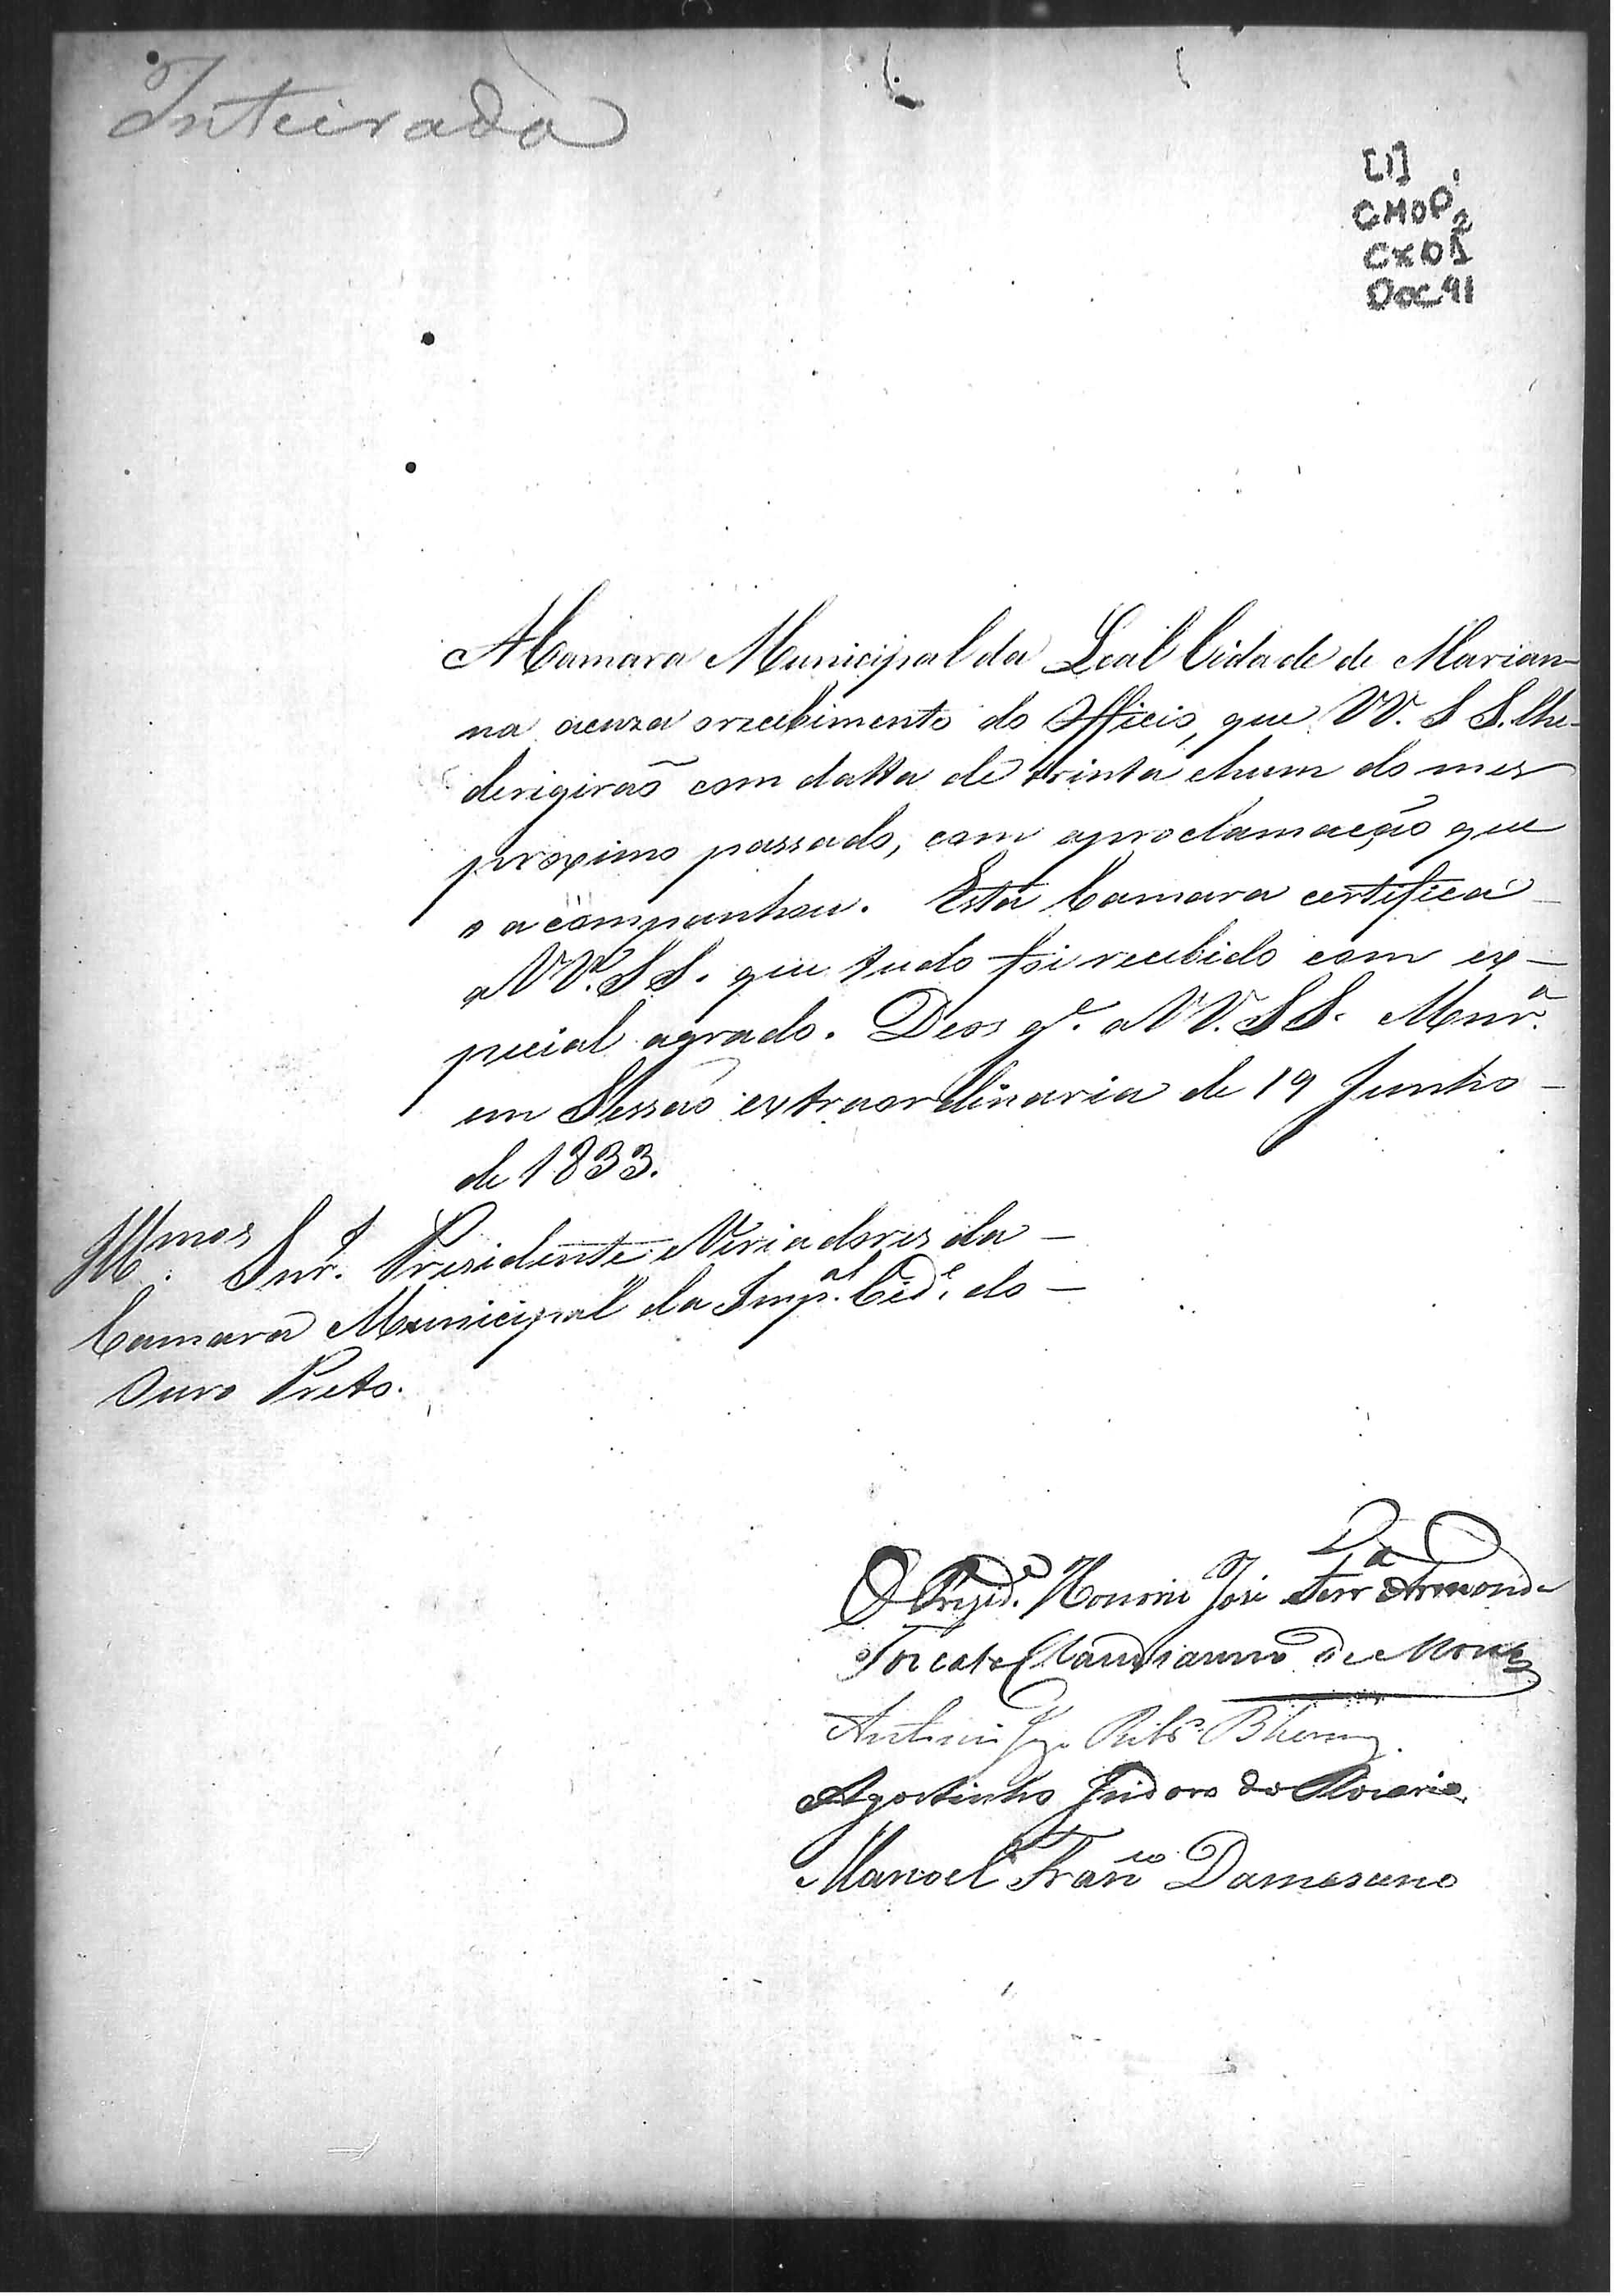 Inteirada
[1]
CMOP2
CX01
Doc 91
A Camara Municipal da Leal Cidade de Marian-
na acuza o recebimento do Officio, que VV. S S. lhe
derigirão com datta de trinta ehum do mes
proximo passado, com aproclamação que
o acompanhou. Esta Camara certifica
a VV. S S. que tudo foi recebido com es-
pecial agrado. Deos g.e a VV. SS. Mnr.a
em Sessão extraordinaria de 19 Junho
de 1833.
Illmos Snr.s Presidente e Veriadores da
Camara Municipal da Imp.al Cid.e do
Ouro Preto.
O Prezid.e José Ferr.a Armonde
Torcato Claudianno de Moraes
Antonio Rib.o Bhering.
Agostinho Izidoro do Rozario.
Manoel Fran.co Damasceno